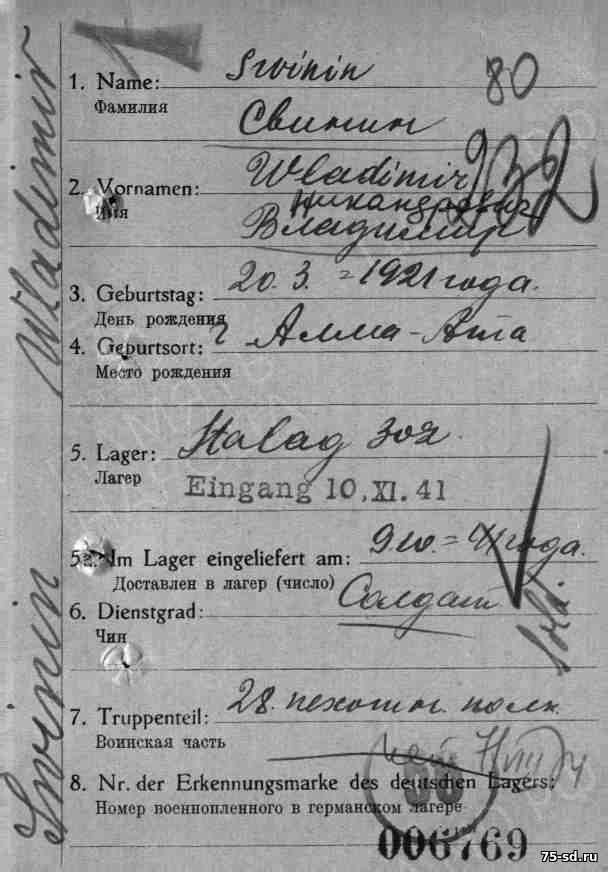 1. Name: Swinin
80
Фамилия Свинин
932
2. Vornamen: Wladimir
Имя
Никандрович
Владимир
3. Geburtstag: 20. 3. = 1921 года.
День рождения
4. Geburtsort: г Алма-Ата
Место рождения
5. Lager: Stalag 302
Лагер
Eingang 10.XI.41
5a. Im Lager eingeliefert am: 9 10. = 41 года.
Доставлен в лагер (число)
6. Dienstgrad: Солдат
Чин
7. Truppenteil: 28. пехотн. полк.
Воинская часть
8. Nr. der Erkennungsmarke des deutschen Lagers:
Номер военнопленного в германском лагере
006769
Swinin Wladimir
75-sd.ru